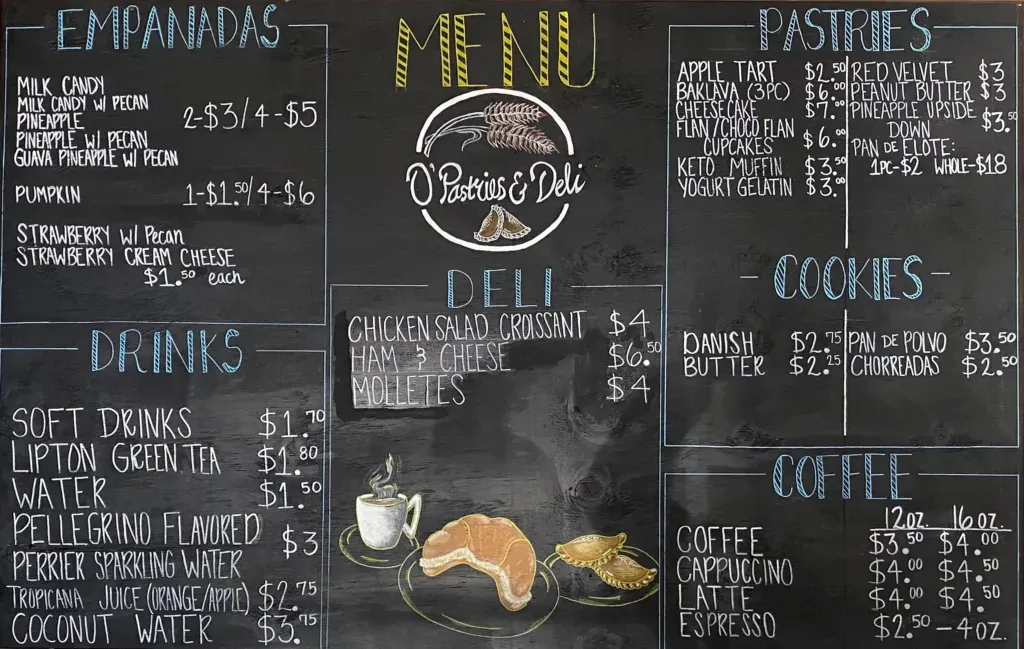 EMPANADAS
MILK CANDY
MILK CANDY W/ PECAN
PINEAPPLE
2-$3/4-$5
PINEAPPLE W/ PECAN
GUAVA PINEAPPLE W/ PECAN
PUMPKIN 1-$1.50/4-$6
STRAWBERRY W/ Pecan
STRAWBERRY CREAM CHEESE
$1.50 each
DRINKS
SOFT DRINKS $1.70
LIPTON GREEN TEA $1.80
WATER $1.50
PELLEGRINO FLAVORED
$3
PERRIER SPARKLING WATER
TROPICANA JUICE (ORANGE/APPLE) $2.75
COCONUT WATER $3.75
MENU
O'Pastries & Deli
DELI
CHICKEN SALAD CROISSANT $4
HAM & CHEESE $6.50
MOLLETES $4
PASTRIES
APPLE TART $2.50
BAKLAVA (3PC) $6.00
CHEESECAKE $7.00
FLAN/CHOCO FLAN
CUPCAKES $6.00
KETO MUFFIN $3.50
YOGURT GELATIN $3.00
RED VELVET $3
PEANUT BUTTER $3
PINEAPPLE UPSIDE
DOWN $3.50
PAN DE ELOTE:
1PC-$2 WHOLE-$18
-COOKIES-
DANISH $2.75
BUTTER $2.25
PAN DE POLVO $3.50
CHORREADAS $2.50
COFFEE
12OZ. 16OZ.
COFFEE $3.50 $4.00
CAPPUCCINO $4.00 $4.50
LATTE $4.00 $4.50
ESPRESSO $2.50-4OZ.